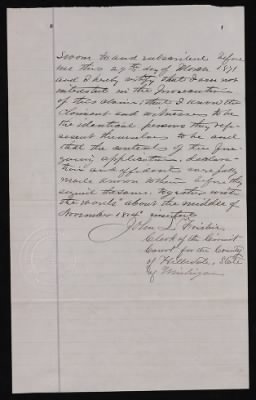 Sworn to and subscribed before
me this 29th day of March 1871
and I hereby certify that I am not
interested in the prosecution
of this claim, that I know the
claimant and witnesses to be
the identical persons they rep
resent themselves to be and
that the contents of the fore
going application, declara
tion and affidavit carefully
made known before they
signed the same. together with
the words "about the middle of
November 1814"
John
Clerk of the Circuit
Court for the County
of Hillsdale, State
of Michigan